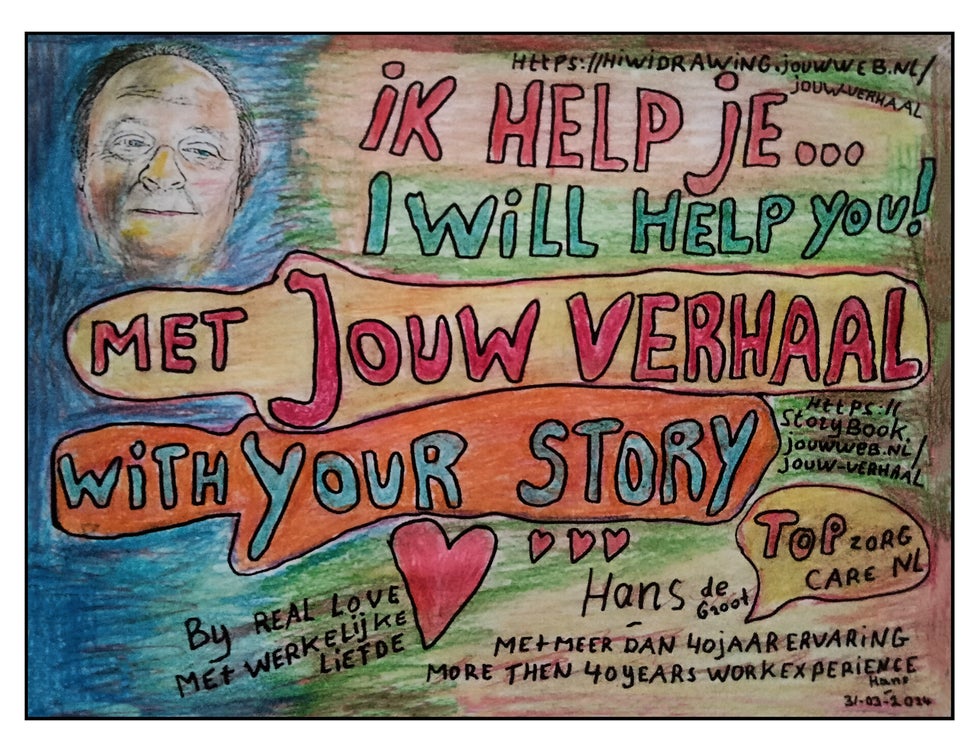 HttPS://HiWiDRAWING.JOUWWEB.NL/
JOUW-VERHAAL
iK HELP jE...
I WiLL HELP YOU!
MET JOUW VERHAAL
HttPS://
StoryBook.
jouwweB.NL/
jouw-VERHAAL
WiTH YOUR STORY
TOP ZORG
CARE NL
Hans de
Groot
By REAL LOVE
MEt WERKELijKE
LiEfDE
MEt MEER DAN 40 jAAR ERVARING
MORE THEN 40 YEARS WORKEXPERIENCE
Hans
31-03-2024